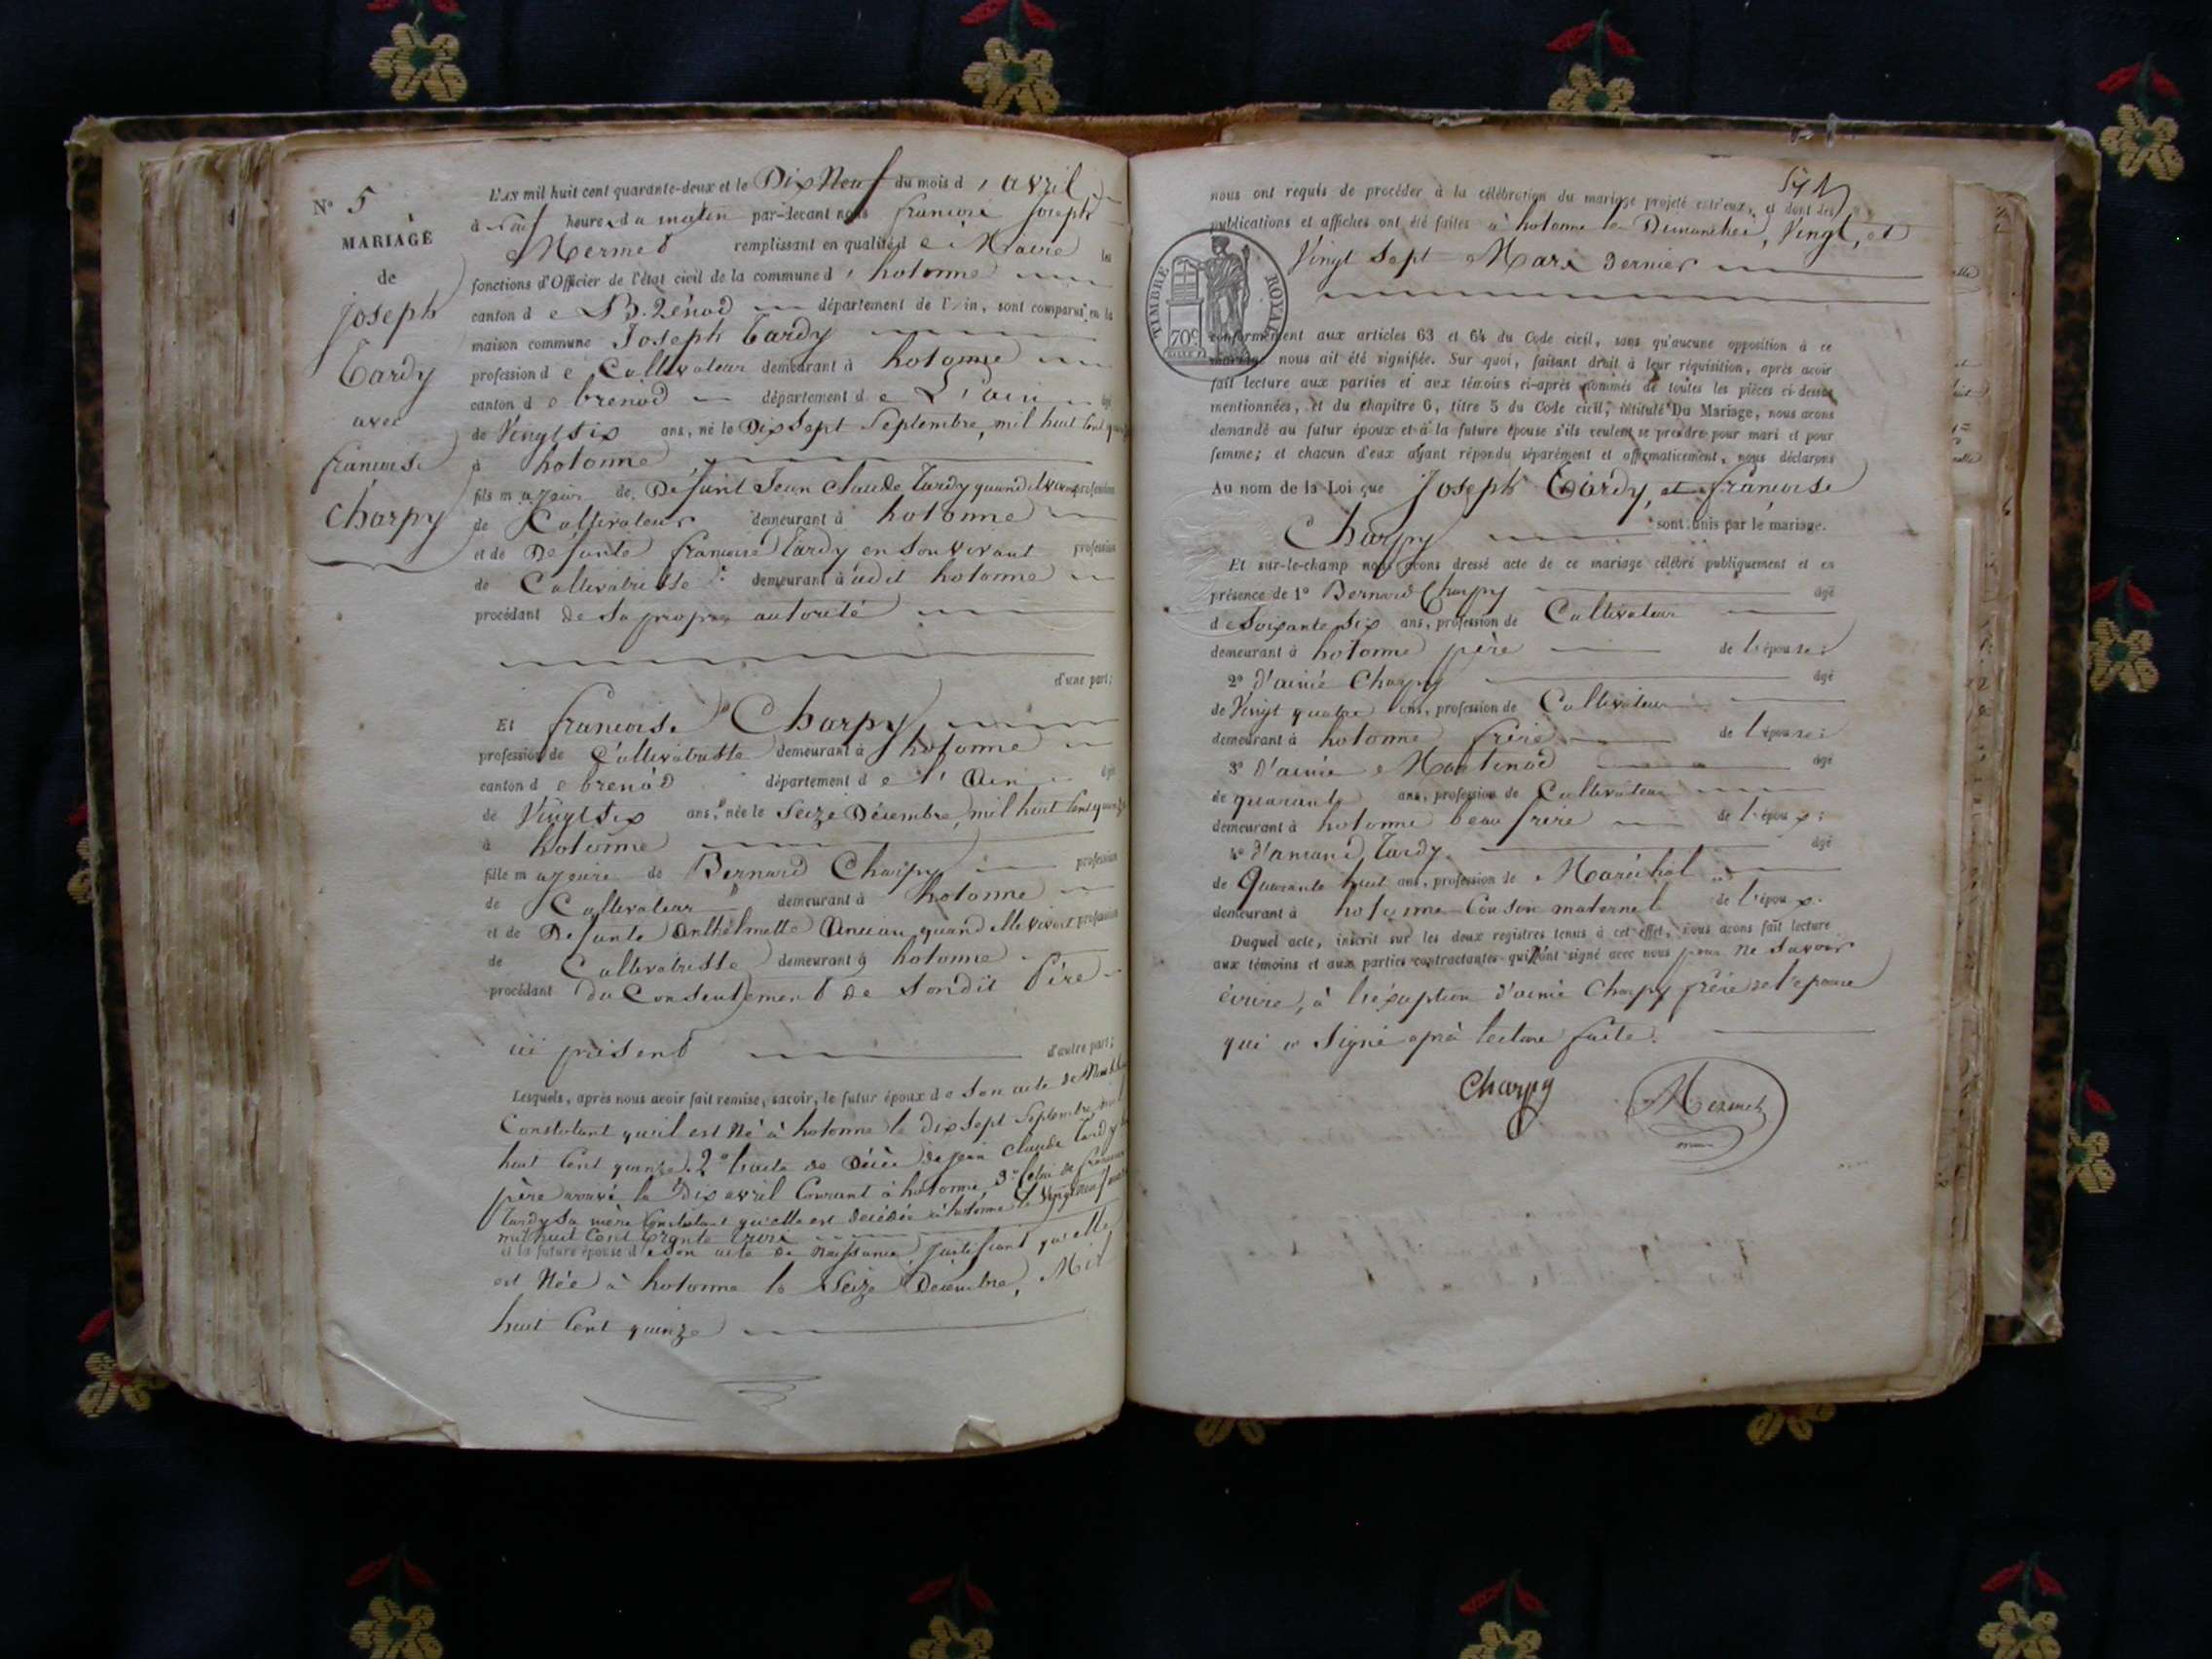 N° 5
MARIAGE
de
Joseph
Tardy
avec
francoise
Charpy
L'AN mil huit cent quarante-deux et le Dix Neuf du mois d'avril
à neuf heures du matin par-devant nous francois Joseph
Mermet remplissant en qualité de Maire les
fonctions d'Officier de l'état civil de la commune d'hotonne
canton de Brénod département de l'Ain, sont comparus en la
maison commune Joseph Tardy
profession de Cultivateur demeurant à hotonne
canton de brenod département de L'ain âgé
de Vingt six ans, né le Dix Sept Septembre, mil huit Cent quinze
à hotonne
fils majeur de Défunt Jean Claude Tardy quand il vivait profession
de Cultivateur demeurant à hotonne
et de Défunte francoise Tardy en Son vivant profession
de Cultivatrisse demeurant audit hotonne
procédant de Sa propre autorité
d'une part;
Et francoise Charpy
profession de Cultivatrisse demeurant à hotonne
canton de brenod département de l'Ain âgé
de Vingt Six ans, née le Seize Décembre, mil huit Cent quinze
à hotonne
fille majeure de Bernard Charpy profession
de Cultivateur demeurant à hotonne
et de Defunte Anthelmette Ancian, quand elle vivait profession
de Cultivatrisse demeurant à hotonne
procédant du Consentement de Sondit Père
ici présent d'autre part;
Lesquels, après nous avoir fait remise, savoir, le futur époux de Son acte de
Constatant qu'il est Né à hotonne le dix sept Septembre, mil
huit Cent quinze. 2° l'acte de Décès de jean Claude Tardy
père arrivé le Dix avril Courant à hotonne, 3° Celui de francoise
Tardy Sa mère Constatant qu'elle est décédée à hotonne le Vingt neuf
mil huit Cent trente trois
et la future épouse de Son acte de Naissance, justifiant qu'elle
est Née à hotonne le Seize Décembre, Mil
huit Cent quinze
nous ont requis de procéder à la célébration du mariage projeté entr'eux, et dont les
publications et affiches ont été faites à hotonne les Dimanches, Vingt, et
Vingt Sept Mars Dernier
TIMBRE ROYAL
70c
conformément aux articles 63 et 64 du Code civil, sans qu'aucune opposition à ce
mariage nous ait été signifiée. Sur quoi, faisant droit à leur réquisition, après avoir
fait lecture aux parties et aux témoins ci-après nommés de toutes les pièces ci-dessus
mentionnées, et du chapitre 6, titre 5 du Code civil, intitulé Du Mariage, nous avons
demandé au futur époux et à la future épouse s'ils veulent se prendre pour mari et pour
femme; et chacun d'eux ayant répondu séparément et affirmativement, nous déclarons
Au nom de la Loi que Joseph Tardy, et francoise
Charpy sont unis par le mariage.
Et sur-le-champ nous avons dressé acte de ce mariage célébré publiquement et en
présence de 1° Bernard Charpy âgé
de Soixante Six ans, profession de Cultivateur
demeurant à hotonne père de l'épouse;
2° d'aimé Charpy âgé
de Vingt quatre ans, profession de Cultivateur
demeurant à hotonne frère de l'épouse;
3° d'aimé Martinod âgé
de quarante ans, profession de Cultivateur
demeurant à hotonne beau frère de l'époux;
4° d'amand Tardy âgé
de Quarante huit ans, profession de Maréchal
demeurant à hotonne Cousin maternel de l'époux.
Duquel acte, inscrit sur les deux registres tenus à cet effet, nous avons fait lecture
aux témoins et aux parties contractantes qui n'ont signé avec nous pour ne Savoir
écrire, à l'exception d'aimé Charpy frère de l'épouse
qui a Signé après lecture faite.
Charpy Mermet